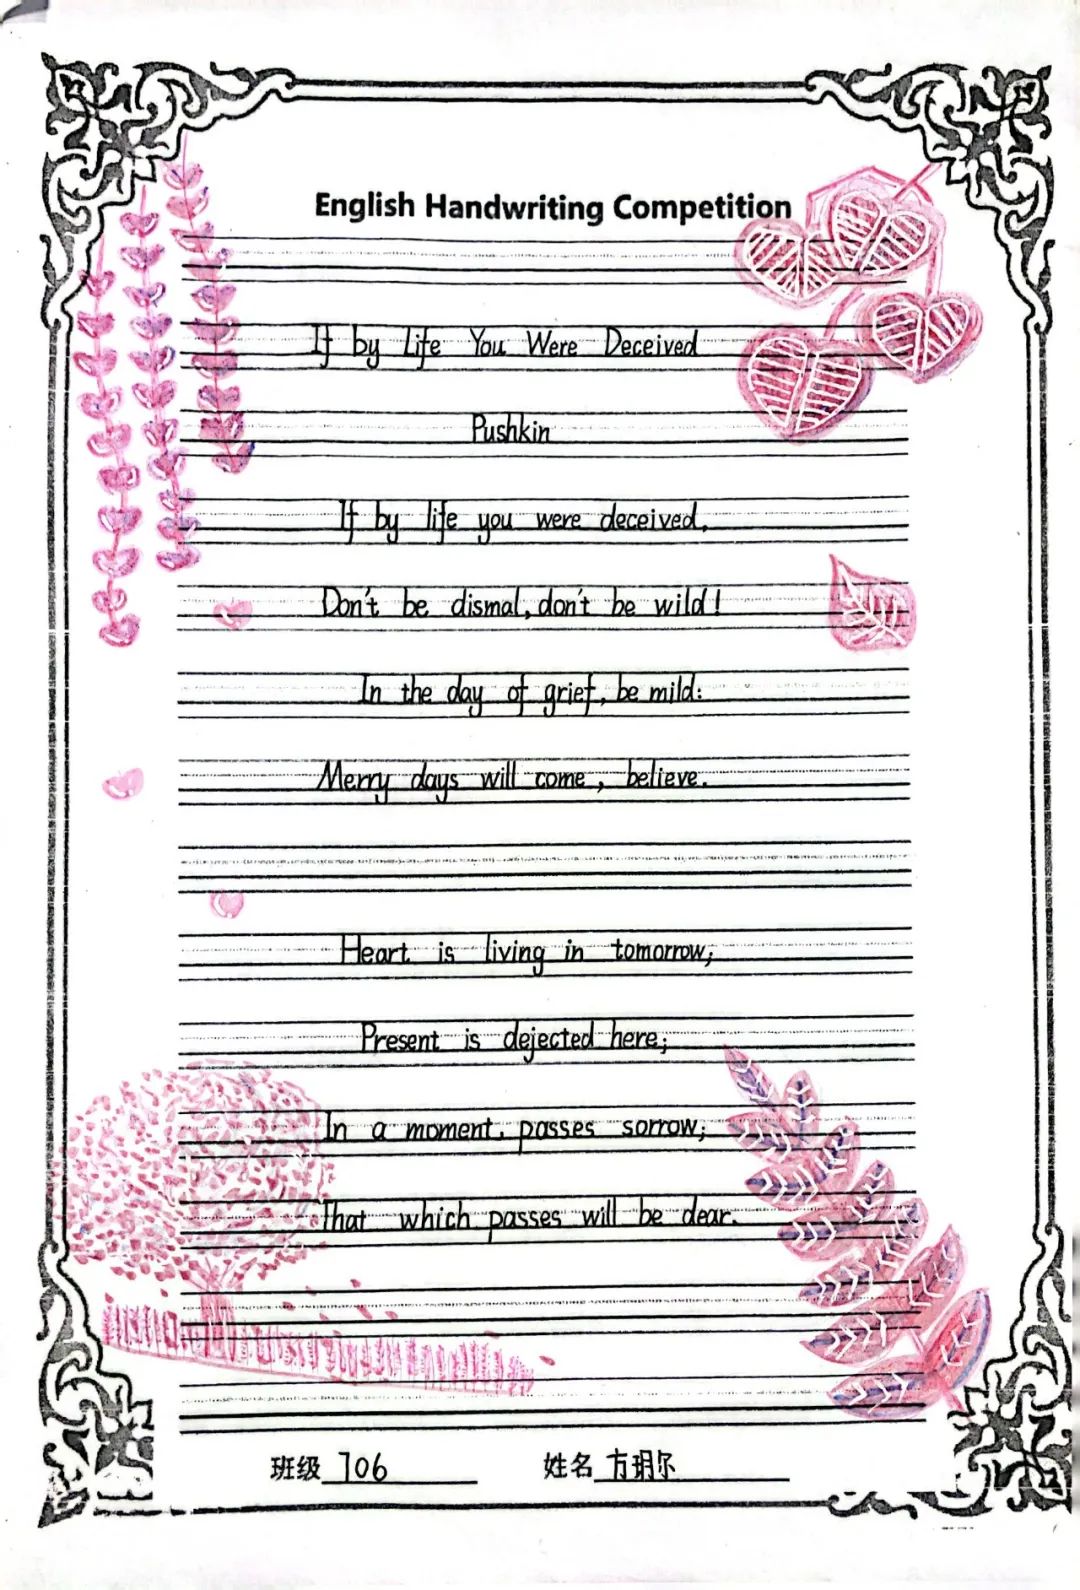 English Handwriting Competition
If by Life You Were Deceived
Pushkin
If by life you were deceived,
Don't be dismal, don't be wild!
In the day of grief, be mild:
Merry days will come, believe.
Heart is living in tomorrow;
Present is dejected here;
In a moment, passes sorrow;
That which passes will be dear.
班级 706 姓名 方玥尔